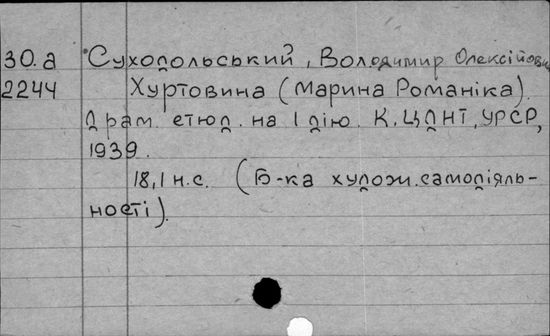 30.а Сухопольський, Володимир Олексійович
2244 Хуртовина (Марина Романіка).
Драм. етюд. на 1 дію. К., ЦДНТ, УРСР,
1939.
18,1 н.с. (Б-ка худож. самодіяль-
ності).